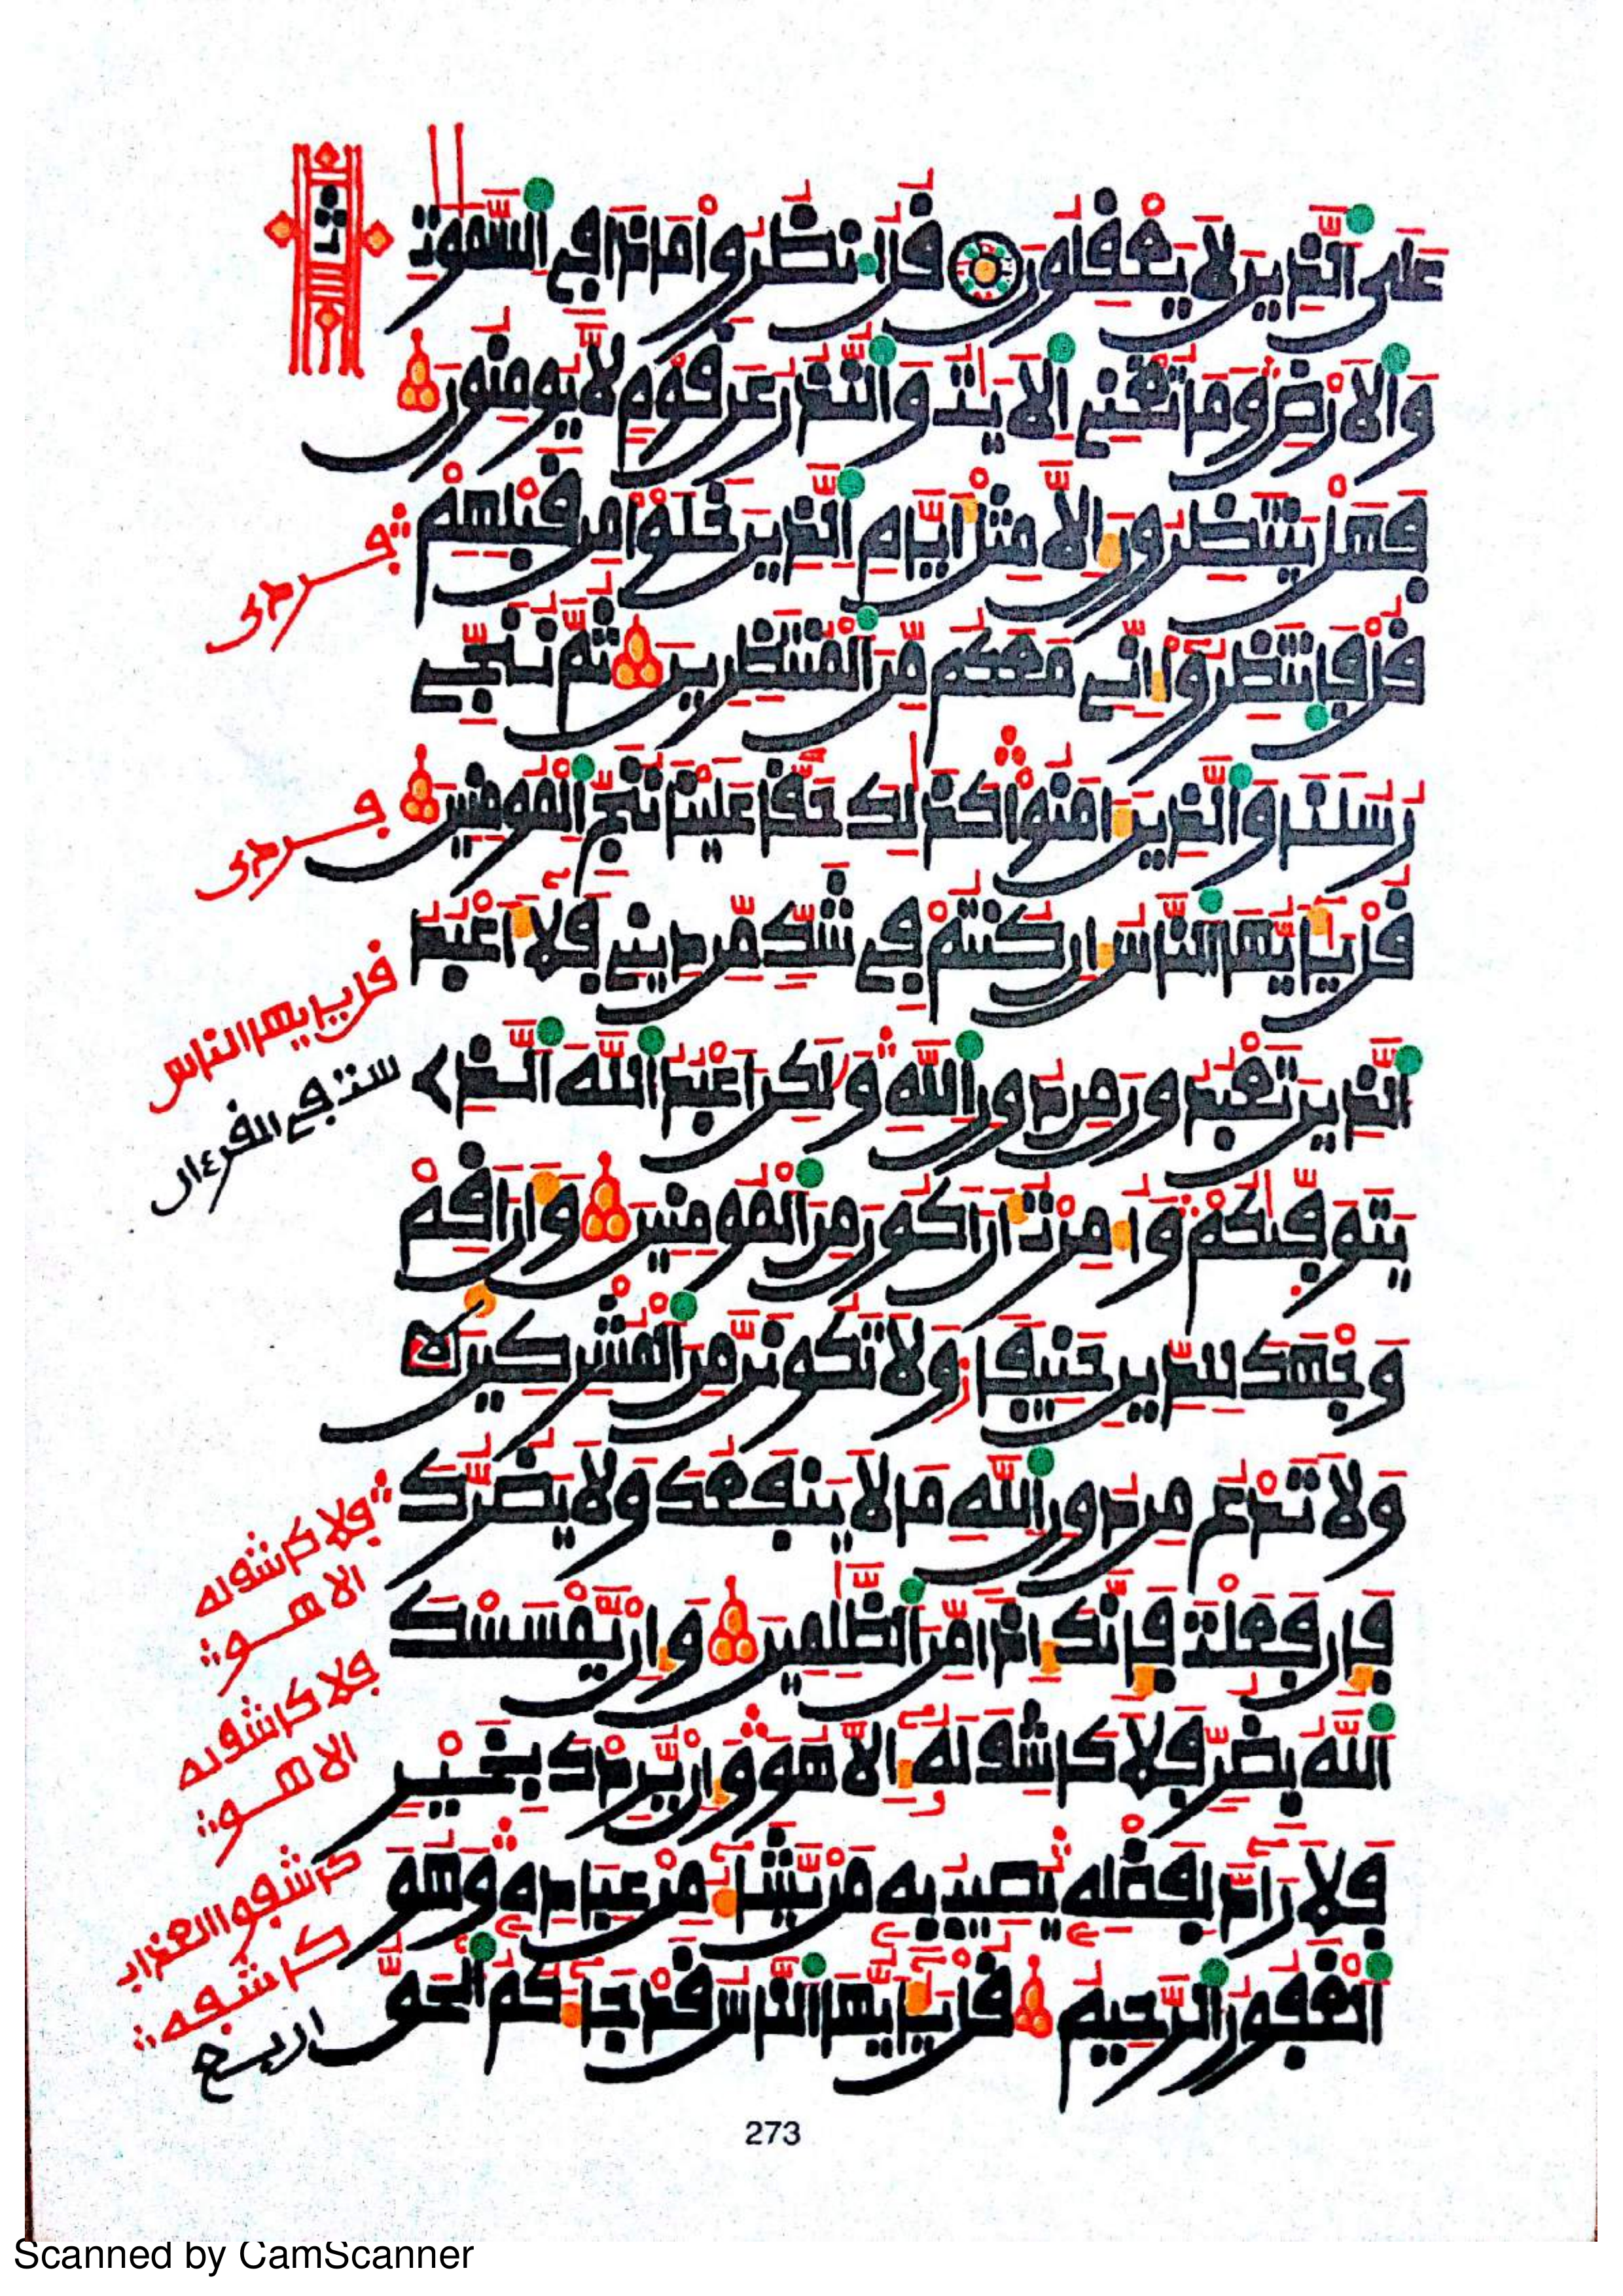 عَلَى ٱلذِينَ لَا يَعْقِلُونَ قُلُ ٱنظُرُوا۟ مَاذَا فِے ٱلسَّمَٰوَٰتِ
وَٱلَارْضِ وَمَا تُغْنِے ٱلَايَٰتُ وَٱلنُّذُرُ عَن قَوْمٍ لَّا يُومِنُونَ
فَهَلْ يَنتَظِرُونَ إِلَّا مِثْلَ أَيَّامِ ٱلذِينَ خَلَوْا۟ مِن قَبْلِهِمْ
قُلْ فَٱنتَظِرُوٓا۟ إِنِّے مَعَكُم مِّنَ ٱلْمُنتَظِرِينَ ثُمَّ نُنَجِّے
رُسُلَنَا وَٱلذِينَ ءَامَنُوا۟ كَذَٰلِكَ حَقًّا عَلَيْنَا نُنَجِّ ٱلْمُومِنِينَ
قُلْ يَٰٓأَيُّهَا ٱلنَّاسُ إِن كُنتُمْ فِے شَكٍّ مِّن دِينِے فَلَآ أَعْبُدُ
ٱلذِينَ تَعْبُدُونَ مِن دُونِ ٱللَّهِ وَلَٰكِنَ اَعْبُدُ ٱللَّهَ ٱلذِے
يَتَوَفَّىٰكُمْ وَأُمِرْتُ أَنَ اَكُونَ مِنَ ٱلْمُومِنِينَ وَأَنَ اَقِمْ
وَجْهَكَ لِلدِّينِ حَنِيفًا وَلَا تَكُونَنَّ مِنَ ٱلْمُشْرِكِينَ
وَلَا تَدْعُ مِن دُونِ ٱللَّهِ مَا لَا يَنفَعُكَ وَلَا يَضُرُّكَ
فَإِن فَعَلْتَ فَإِنَّكَ إِذًا مِّنَ ٱلظَّٰلِمِينَ وَإِنْ يَّمْسَسْكَ
ٱللَّهُ بِضُرٍّ فَلَا كَاشِفَ لَهُۥٓ إِلَّا هُوَ وَإِنْ يُّرِدْكَ بِخَيْرٍ
فَلَا رَآدَّ لِفَضْلِهِۦ يُصِيبُ بِهِۦ مَنْ يَّشَآءُ مِنْ عِبَادِهِۦ وَهُوَ
ٱلْغَفُورُ ٱلرَّحِيمُ قُلْ يَٰٓأَيُّهَا ٱلنَّاسُ قَدْ جَآءَكُمُ ٱلْحَقُّ
قل يايها الناس
ست في القرءان
فلا كاشف له
الا هو
فلا كاشف له
الا هو
كاشفوا العذاب
كاشفة
273
Scanned by CamScanner